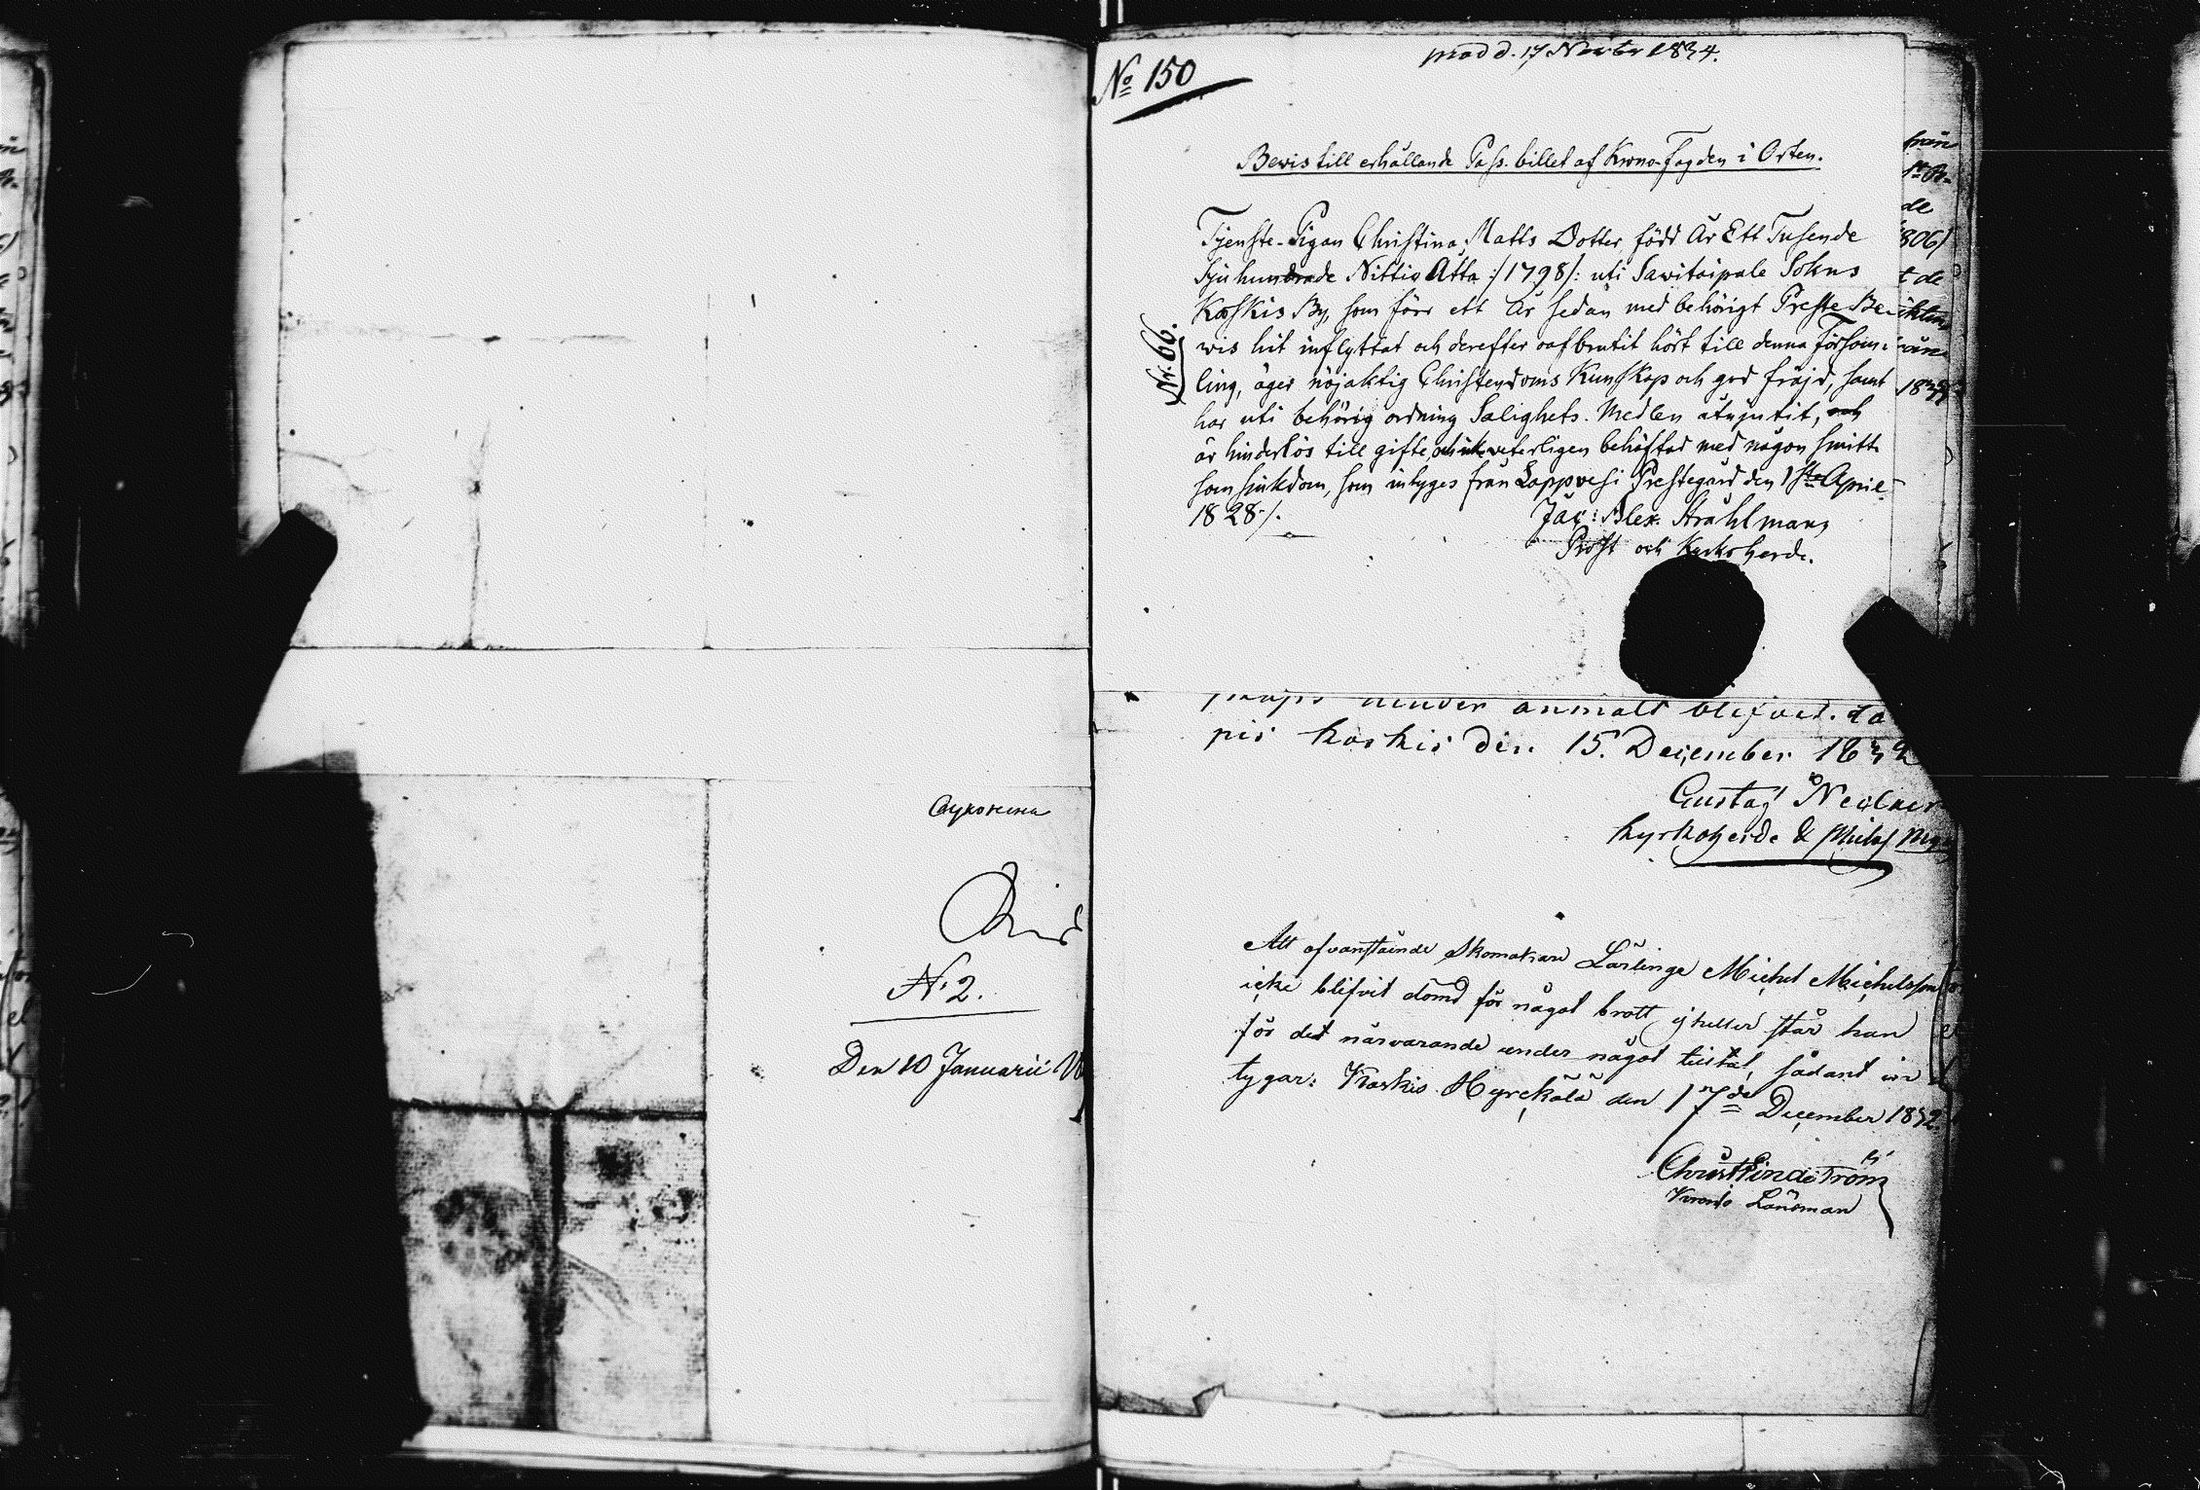 Сухонина
N. 2.
Den 10 Januarii
No 150
prod d. 17 Novbr 1834.
Bewis till erhållande Pass-billet af Krono-Fogden i Orten.
Nr. 66.
Tjenste-Pigan Christina Matts Dotter född År Ett Tusende
Sjuhundrade Nittio Åtta /:1798/: uti Sawitaipale Sokns
Koskis By, som förr ett år sedan med behörigt Preste Be-
wis hit inflyttat och derefter oafbrutit hört till denna Försam-
ling, äger nöjaktig Christendoms Kunskap och god fräjd, samt
har uti behörig ordning Salighets-Medlen åtnjutit, och
är hinderlös till gifte, och ike veterligen behäftad med någon smitt-
som sjukdom, som intyges från Lappvesi Prestegård den 1ste April
1828./.
Jac: Alex. Stråhlman,
Prost och Kyrkoherde.
från
de
806/
t de
anmält blifvit.
pis koskis den 15. December 1832
Gustaf
Kyrkoherde &
Att ofvanstående Skomakare Lärlinge Michel Michelsson
icke blifvit dömd för något brott ej heller står han
för det närvarande under något tiltal, sådant in
tygar: Koskis Hyrckälä den 17de December 1832.
Christ Lindström
Krono Länsman